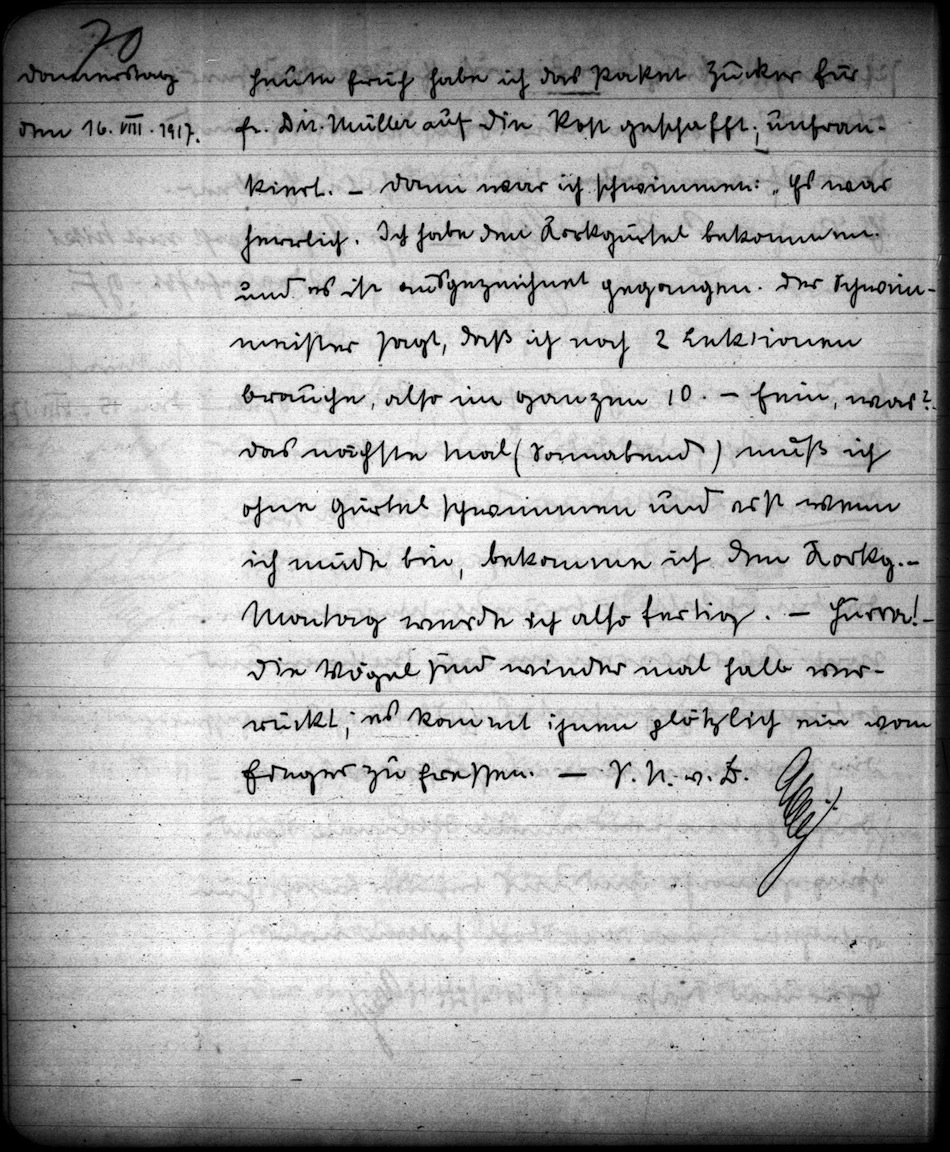 70
Donnerstag
den 16. VIII. 1917.
Heute früh habe ich das Paket Zucker für
Fr. Dir. Müller auf die Post geschafft; unfran-
kiert. – Dann war ich schwimmen: Es war
herrlich. Ich habe den Korkgürtel bekommen
und es ist ausgezeichnet gegangen. Der Schwimm-
meister sagt, daß ich noch 2 Lektionen
brauche, also im ganzen 10. – Fein, was?
Das nächste Mal (Sonnabend) muß ich
ohne Gürtel schwimmen und erst wenn
ich müde bin, bekomme ich den Korkg. –
Montag werde ich also fertig. – Hurra! –
Die Vögel sind wieder mal halb ver-
rückt; es kommt ihnen plötzlich ein vom
Finger zu fressen. –